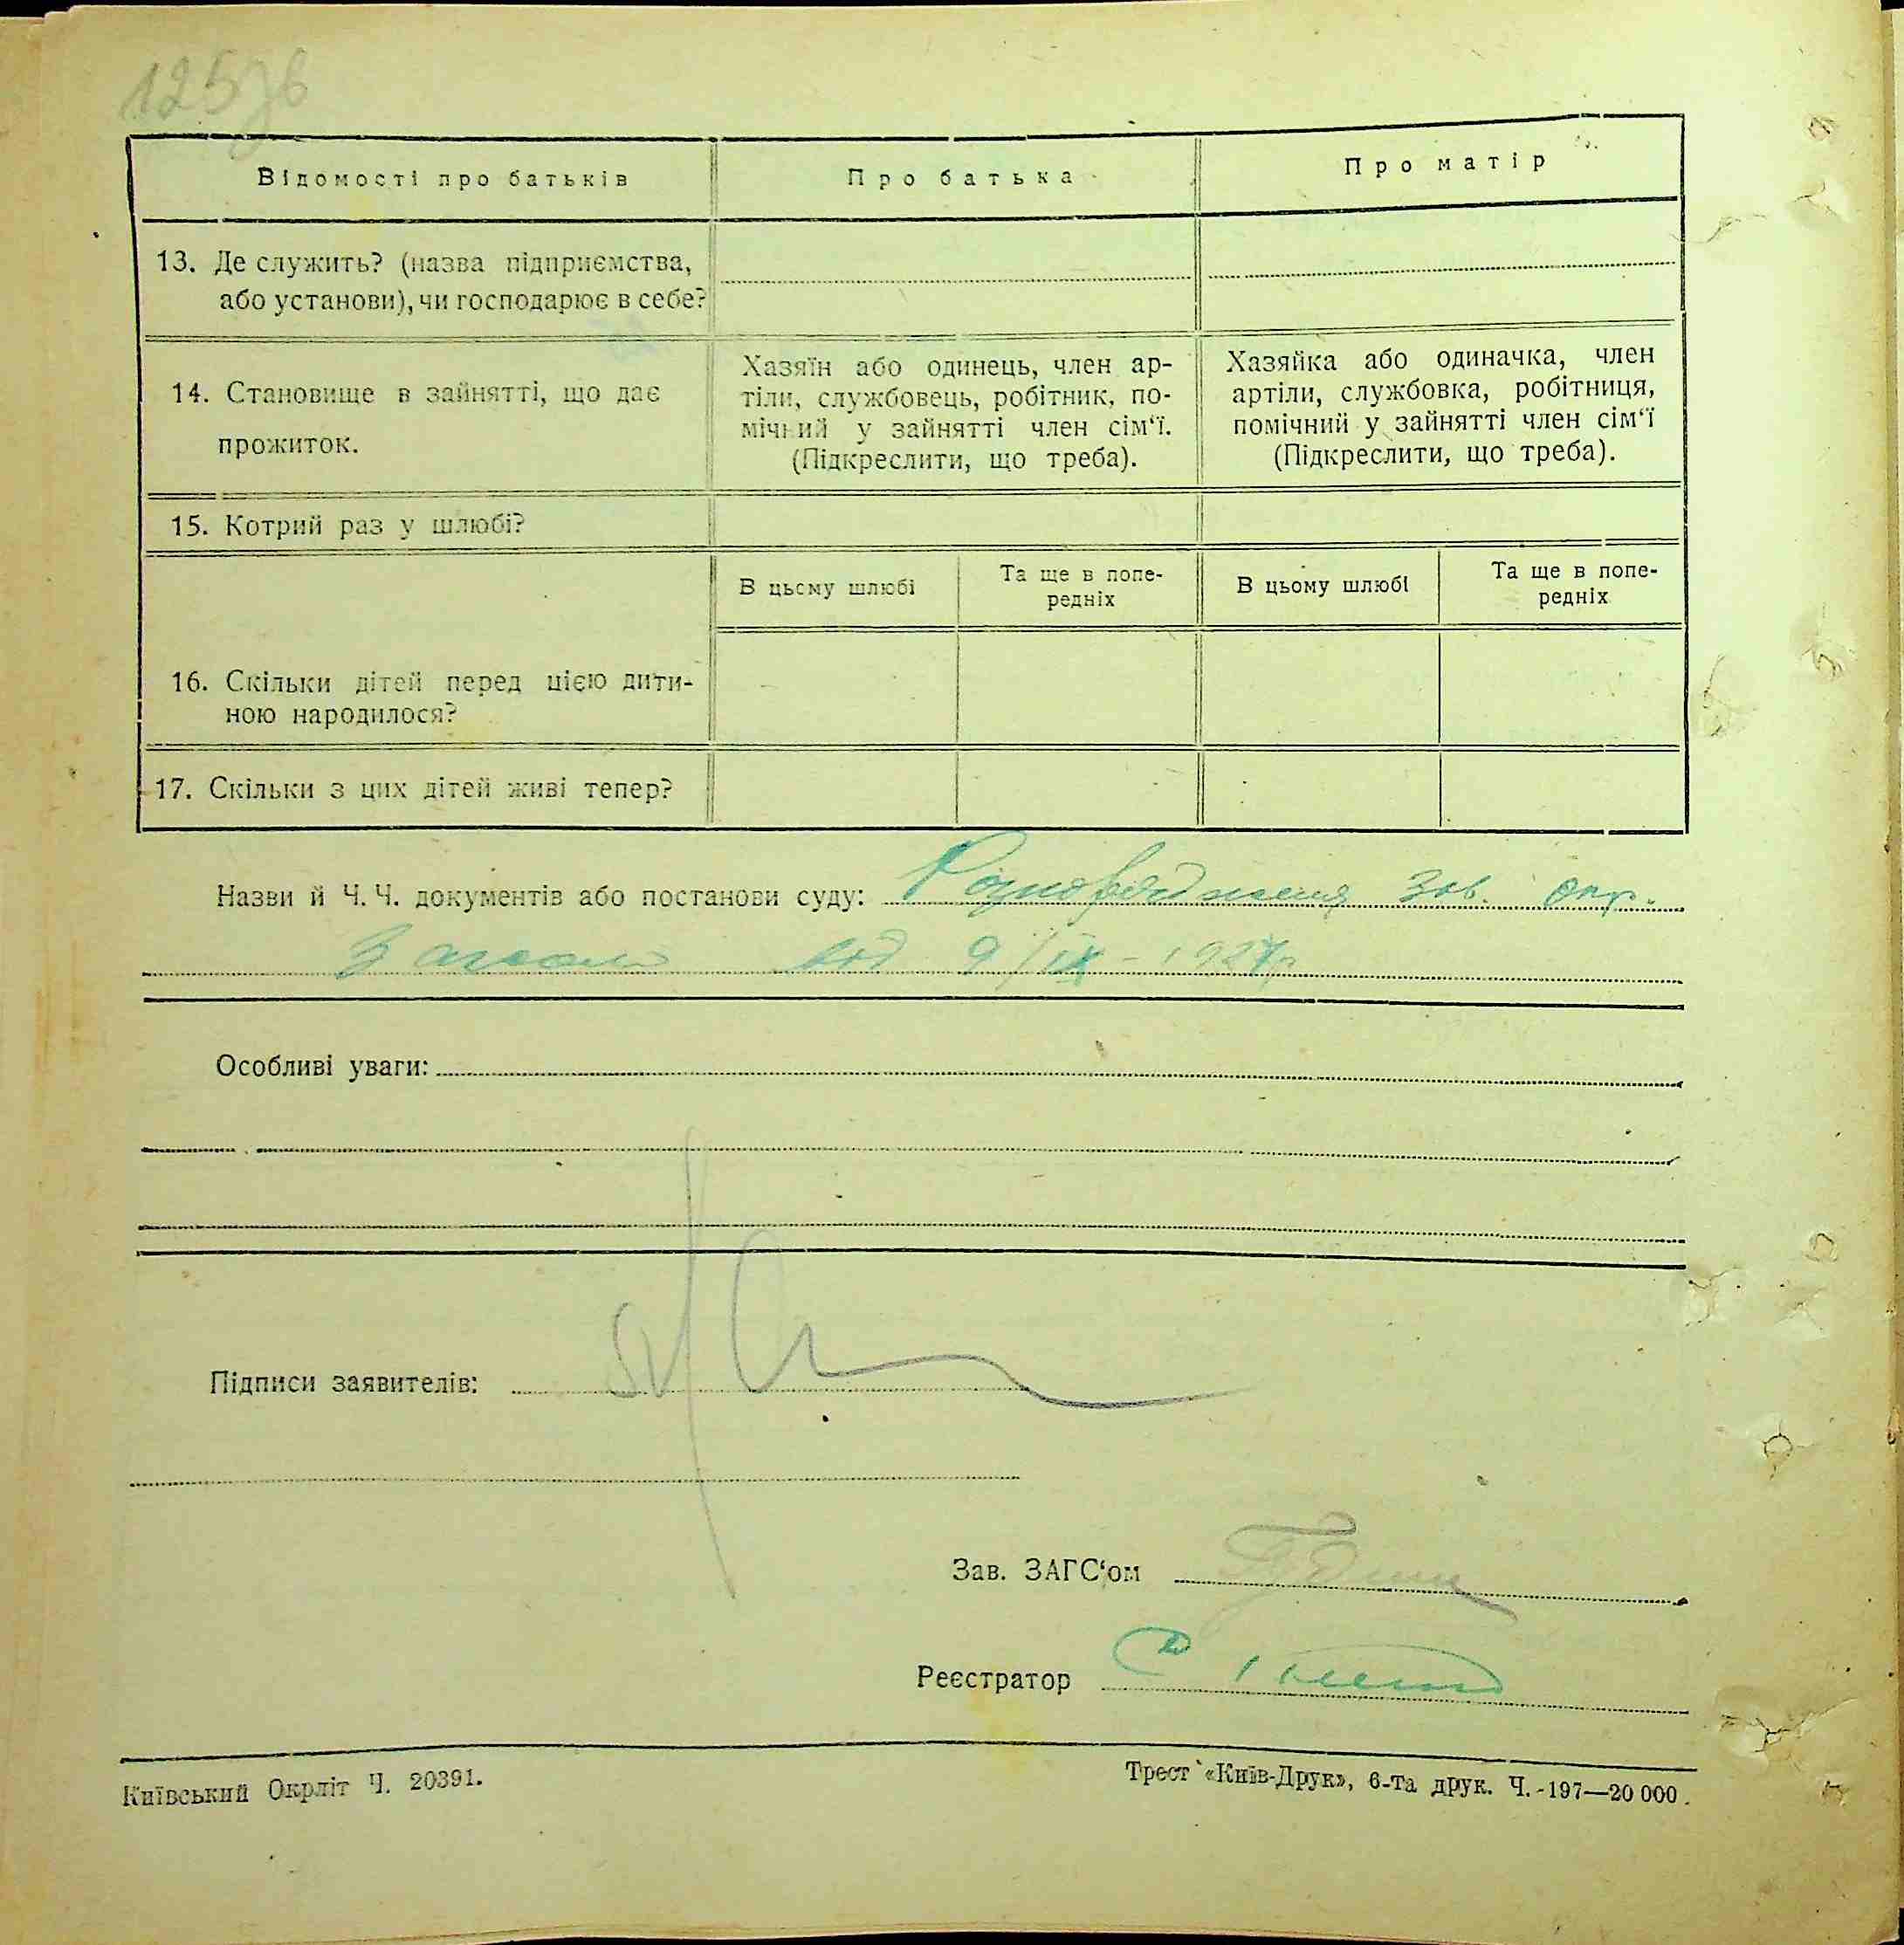 125зв
Відомості про батьків
Про батька
Про матір
13. Де служить? (назва підприємства,
або установи), чи господарює в себе?
14. Становище в зайнятті, що дає
прожиток.
Хазяїн або одинець, член ар-
тіли, службовець, робітник, по-
мічний у зайнятті член сім‘ї.
(Підкреслити, що треба).
Хазяйка або одиначка, член
артіли, службовка, робітниця,
помічний у зайнятті член сім‘ї
(Підкреслити, що треба).
15. Котрий раз у шлюбі?
В цьому шлюбі
Та ще в попе-
редніх
В цьому шлюбі
Та ще в попе-
редніх
16. Скільки дітей перед цією дити-
ною народилося?
17. Скільки з цих дітей живі тепер?
Назви й Ч. Ч. документів або постанови суду: Розпорядження зав. окр.
від 9/IX-1927р
Особливі уваги:
Підписи заявителів:
Зав. ЗАГС‘ом
Реєстратор
Київський Окрліт Ч. 20391.
Трест «Київ-Друк», 6-та друк. Ч.-197—20 000.